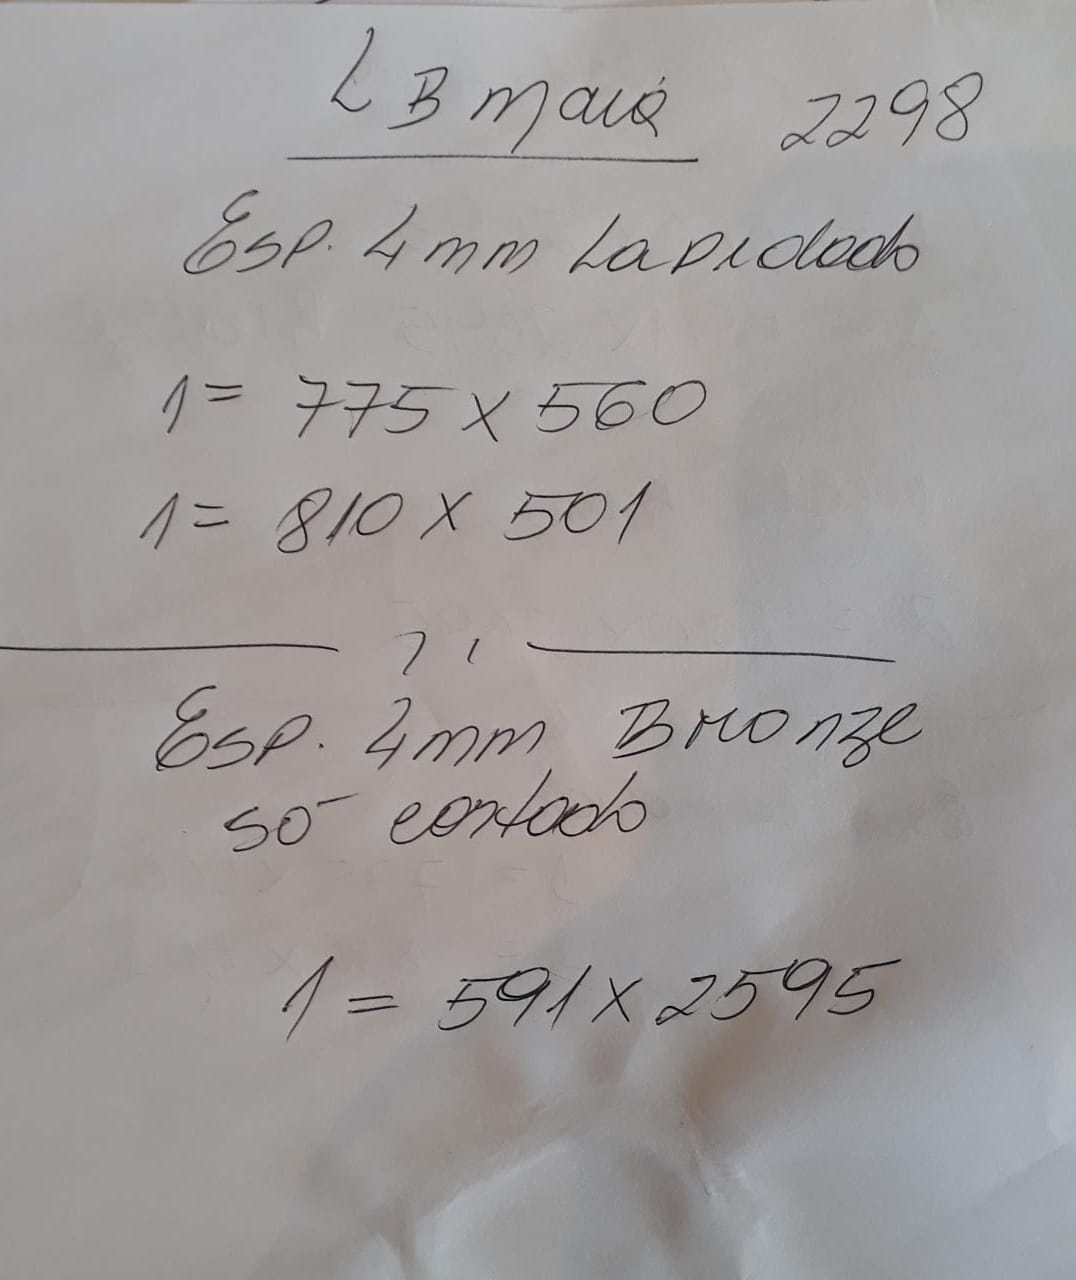 LB Maiá 2298
Esp. 4mm Lapidado
1= 775 x 560
1= 810 x 501
Esp. 4mm Bronze
só cortado
1= 591 x 2595